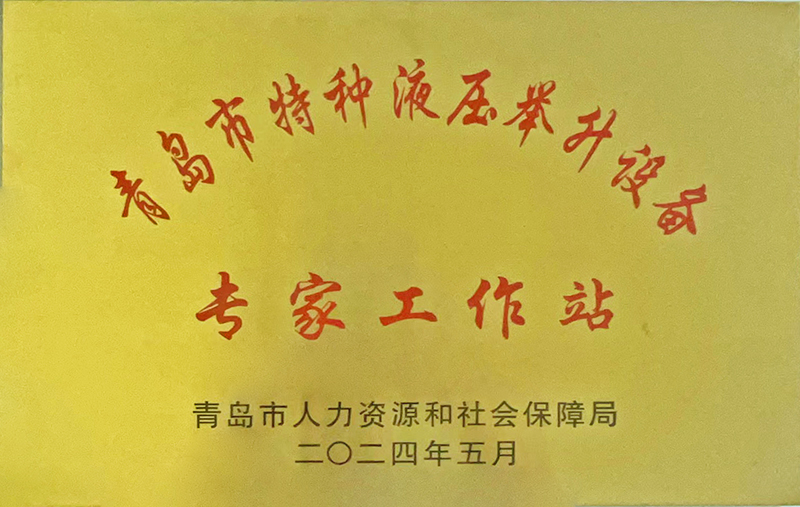 青岛市特种液压举升设备
专家工作站
青岛市人力资源和社会保障局
二〇二四年五月